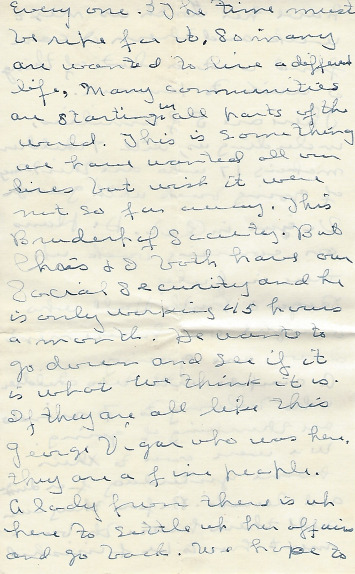 Every one. The time must
be ripe for it. So many
are wanted to live a different
life. Many communities
are starting in all parts of the
world. This is something
we have wanted all our
lives but wish it were
not so far away. This
Bruderhof Society. But
Chas & I both have our
Social Security and he
is only working 45 hours
a month. He wants to
go down and see if it
is what we think it is.
If they are all like this
George Vigar who was here,
they are a fine people.
A lady from there is up
here to settle up her affairs
and go back. We hope to